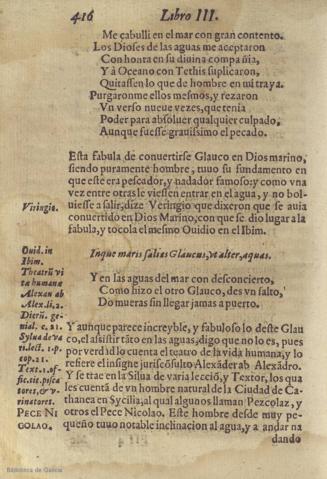 416 Libro III.
Me çabulli en el mar con gran contento.
Los Dioses de las aguas me aceptaron
Con honra en su diuina compañia,
Y à Oceano con Tethis suplicaron,
Quitassen lo que de hombre en mi traya.
Purgaronme ellos mesmos, y rezaron
Vn verso nueue vezes, que tenia
Poder para absoluer qualquier culpado,
Aunque fuesse grauissimo el pecado.
Esta fabula de conuertirse Glauco en Dios marino,
siendo puramente hombre, tuuo su fundamento en
que este era pescador, y nadador famoso: y como vna
vez entre otras le viessen entrar en el agua, y no bol-
Viringio.
uiesse a salir; dize Veringio que dixeron que se auia
conuertido en Dios Marino, con que se dio lugar a la
fabula, y tocola el mesmo Ouidio en el Ibim.
Ouid. in
Ibim.
Inque maris salias Glaucus, vt alter, aquas.
Theatrũ vi
tæ humanæ
Alexan ab
Alex. li. 2.
Dierũ. ge-
nial. c. 21.
Sylua de va
ria lect. 1. p.
cap. 21.
Text. 1. of-
fic. tit. pisca
tores, & v-
rinatores.
PECE NI
COLAO.
Y en las aguas del mar con desconcierto,
Como hizo el otro Glauco, des vn salto,
Do mueras sin llegar jamas a puerto.
Y aunque parece increyble, y fabuloso lo deste Glau
co, el assistir tãto en las aguas, digo que no lo es, pues
por verdad lo cuenta el teatro de la vida humana, y lo
refiere el insigne jurisc̃osulto Alexãder ab Alexãdro.
Y se trae en la Silua de varia lecciõ, y Textor, los qua
les cuenta de vn hombre natural de la Ciudad de Ca-
thanea en Sycilia; al qual algunos llaman Pezcolaz, y
otros el Pece Nicolao. Este hombre desde muy pe-
queño tuuo notable inclinacion al agua, y a andar na
dando
Biblioteca de Galicia